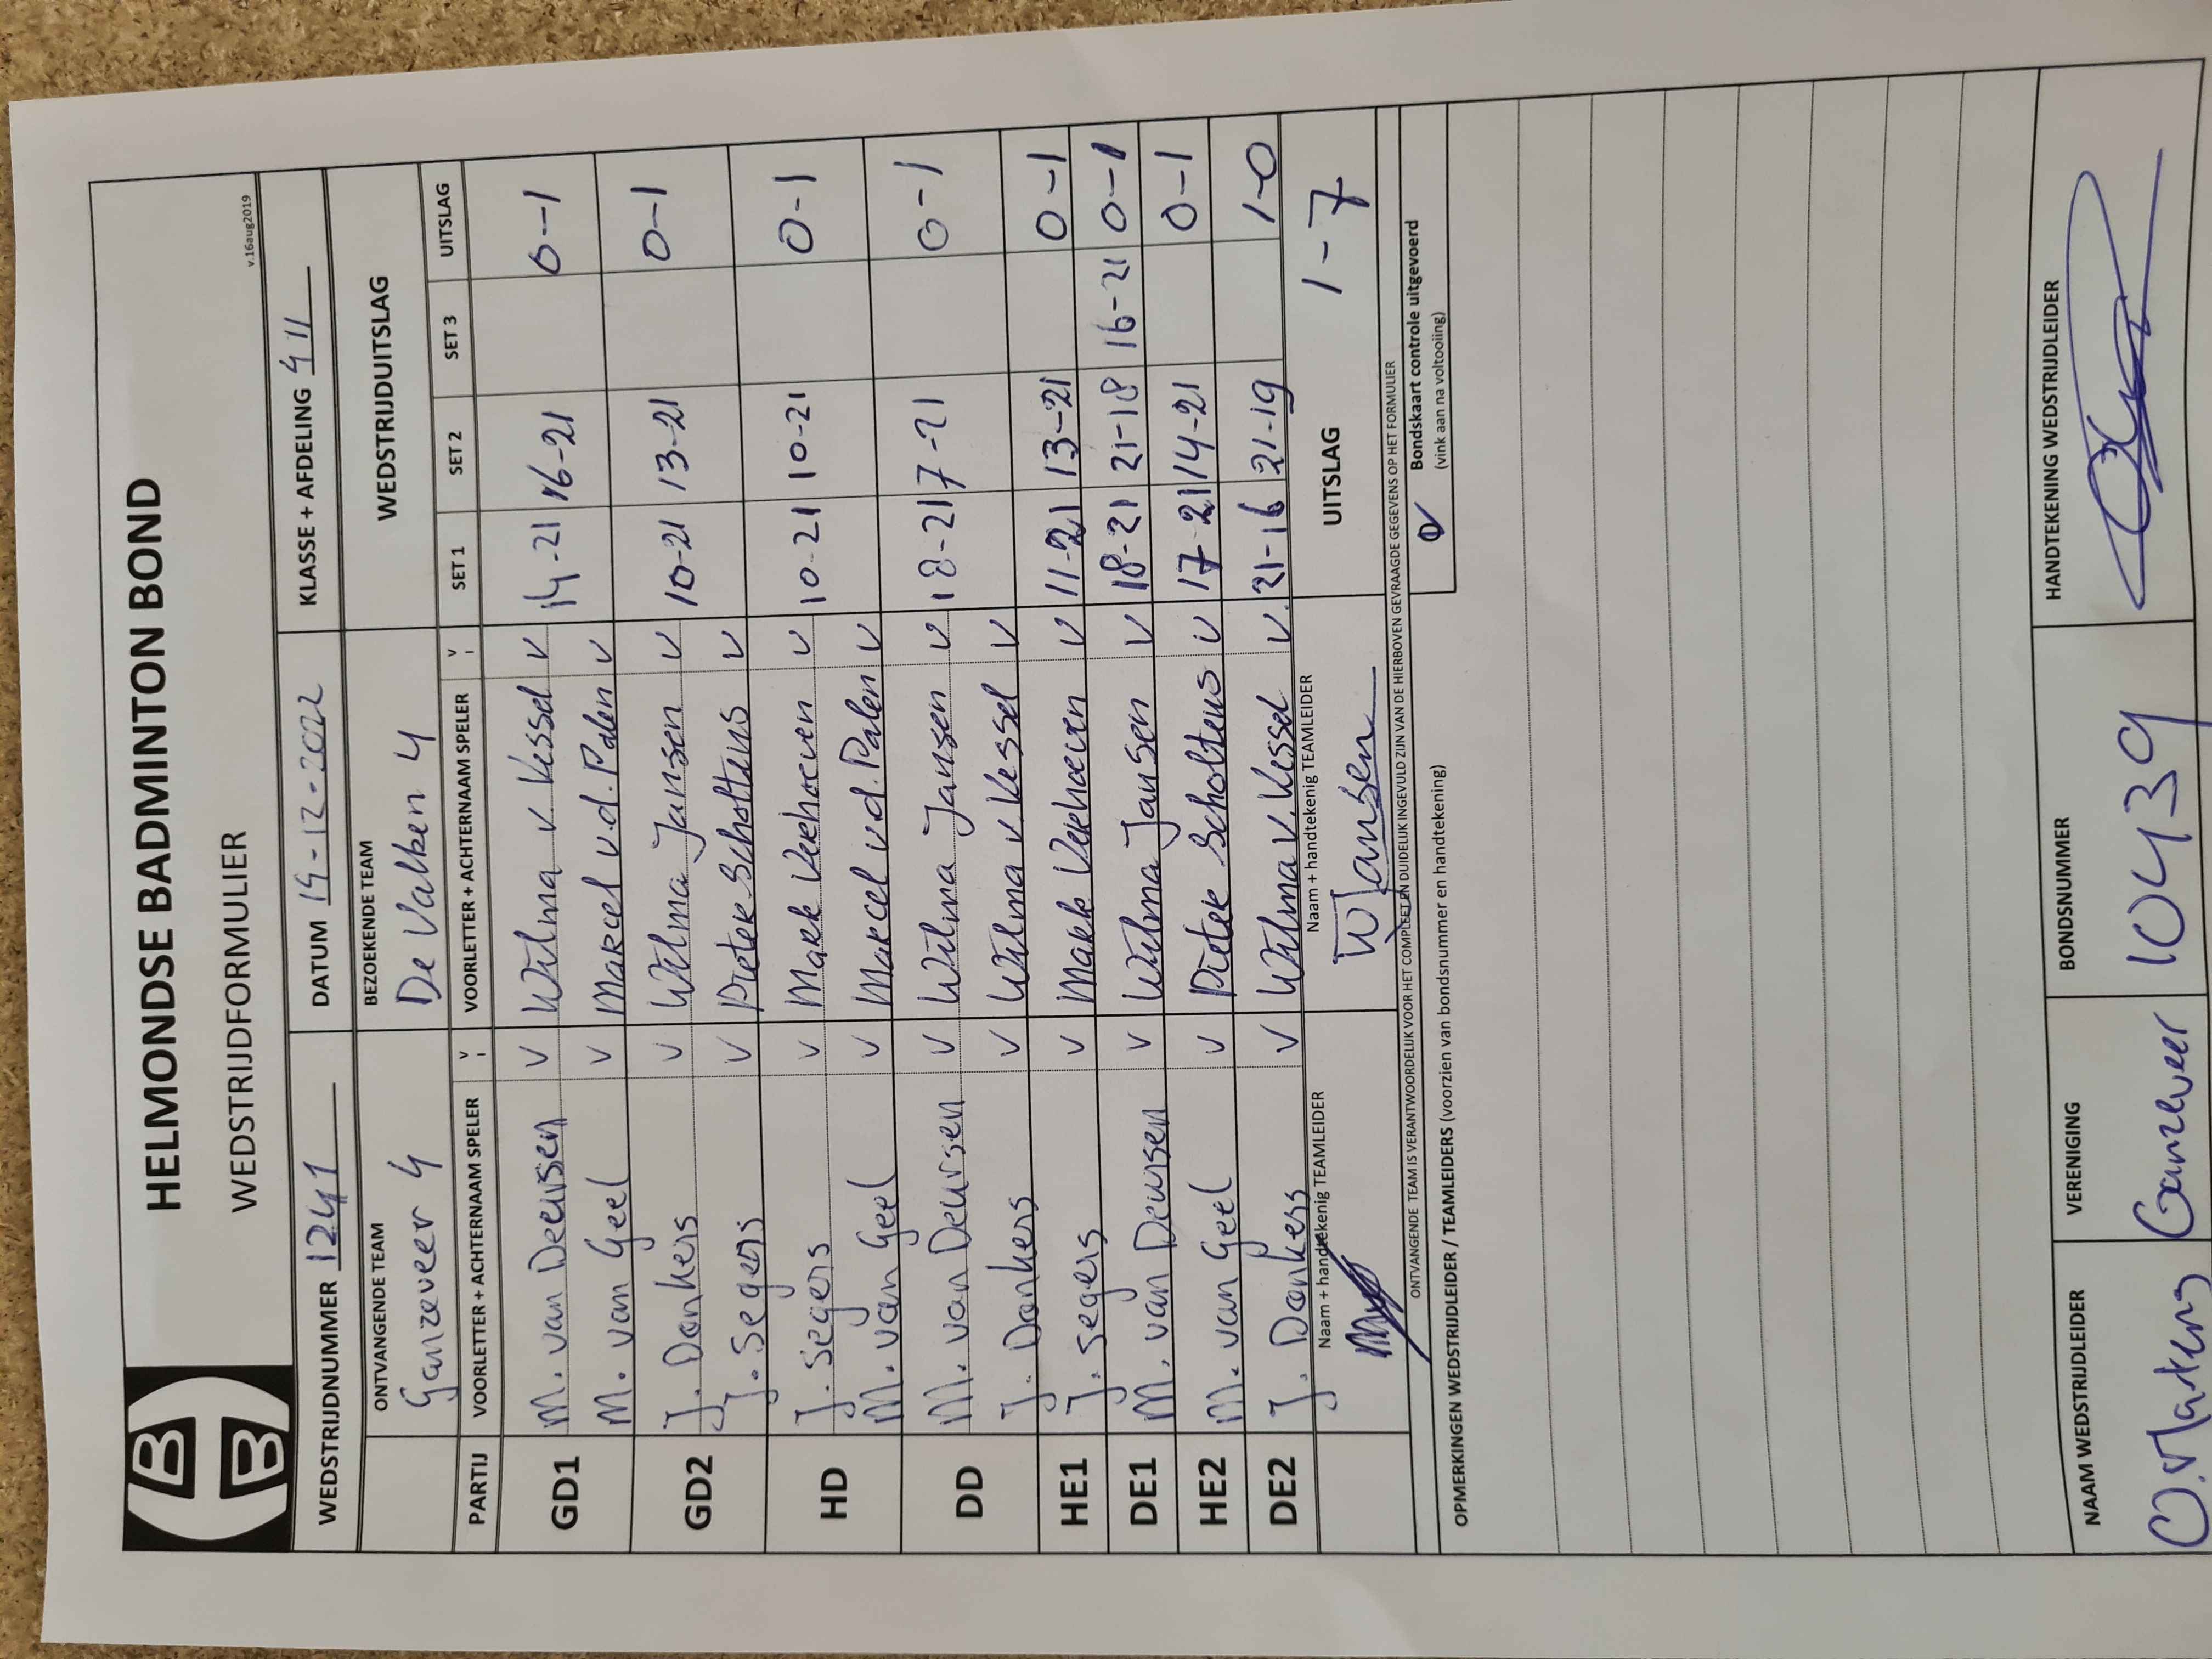 HELMONDSE BADMINTON BOND
WEDSTRIJDFORMULIER
v.16aug2019
WEDSTRIJDNUMMER 1241 DATUM 19-12-2022 KLASSE + AFDELING 411
ONTVANGENDE TEAM BEZOEKENDE TEAM WEDSTRIJDUITSLAG
Ganzeveer 4 De Valken 4
PARTIJ VOORLETTER + ACHTERNAAM SPELER V VOORLETTER + ACHTERNAAM SPELER V SET 1 SET 2 SET 3 UITSLAG
GD1 M. van Deursen V Wilma v. Kessel V 14-21 16-21 0-1
M. van Geel V Marcel v.d. Palen V
GD2 J. Donkers V Wilma Jansen V 10-21 13-21 0-1
J. Segers V Pieter Scholtens V
HD J. Segers V Mark Verhoeven V 10-21 10-21 0-1
M. van Geel V Marcel v.d. Palen V
DD M. van Deursen V Wilma Jansen V 18-21 7-21 0-1
J. Donkers V Wilma v. Kessel V
HE1 J. Segers V Mark Verhoeven V 11-21 13-21 0-1
DE1 M. van Deursen V Wilma Jansen V 18-21 21-18 16-21 0-1
HE2 M. van Geel V Pieter Scholtens V 17-21 14-21 0-1
DE2 J. Donkers V Wilma v. Kessel V 21-16 21-19 1-0
Naam + handtekenig TEAMLEIDER Naam + handtekenig TEAMLEIDER UITSLAG 1-7
WJansen
ONTVANGENDE TEAM IS VERANTWOORDELIJK VOOR HET COMPLEET EN DUIDELIJK INGEVULD ZIJN VAN DE HIERBOVEN GEVRAAGDE GEGEVENS OP HET FORMULIER
Bondskaart controle uitgevoerd
(vink aan na voltooiing)
OPMERKINGEN WEDSTRIJDLEIDER / TEAMLEIDERS (voorzien van bondsnummer en handtekening)
NAAM WEDSTRIJDLEIDER VERENIGING BONDSNUMMER HANDTEKENING WEDSTRIJDLEIDER
Ganzeveer 10439